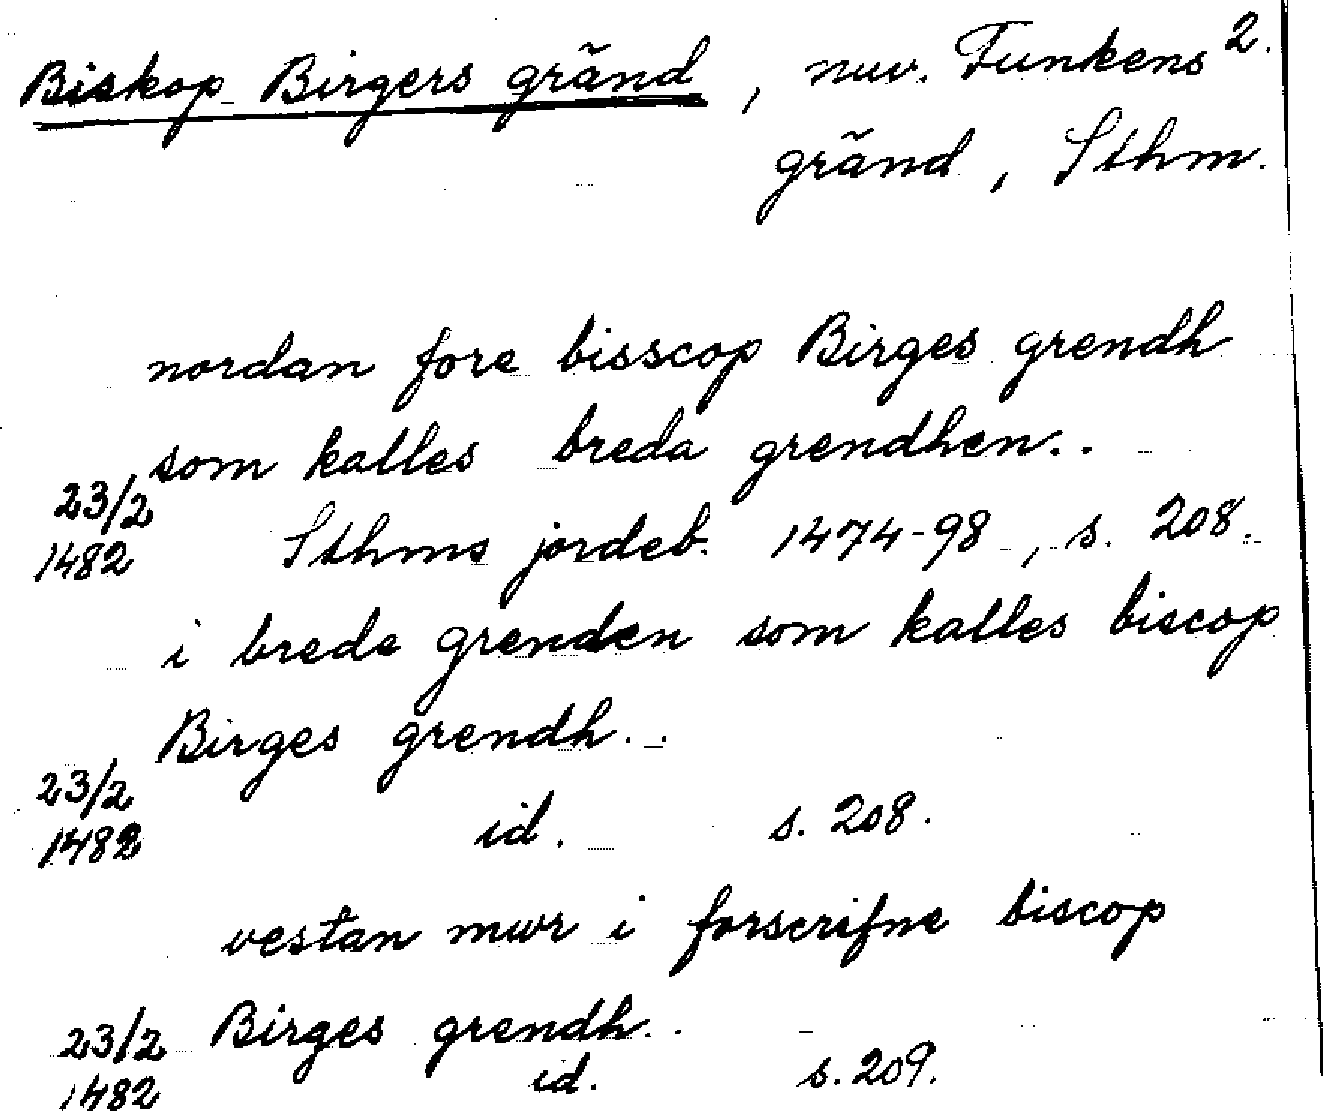 Biskop Birgers gränd, nuv. Funkens 2.
gränd, Sthm.
nordan fore bisscop Birges grendh
som kalles breda grendhen..
23/2
1482 Sthms jordeb. 1474-98, s. 208.
i brede grenden som kalles biscop
Birges grendh..
23/2
1482 id. s. 208.
vestan mwr i forscrifne biscop
23/2 Birges grendh..
1482 id. s. 209.